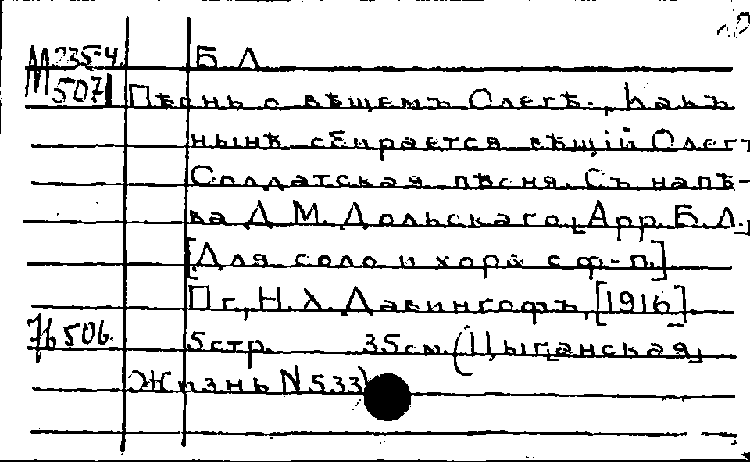 М 235-4 Б Л
М 507 Пѣснь о вѣщемъ Олегѣ. Какъ
нынѣ сбирается вѣщій Олегъ
Солдатская пѣсня. Съ напѣ-
ва Д. М. Дольскаго, Арр. Б. Л.
[Для соло и хора с ф-п.]
Пг., Н. Х. Давингофъ, [1916].
506. 5 стр. 35 см. (Цыганская
Жизнь N 533)